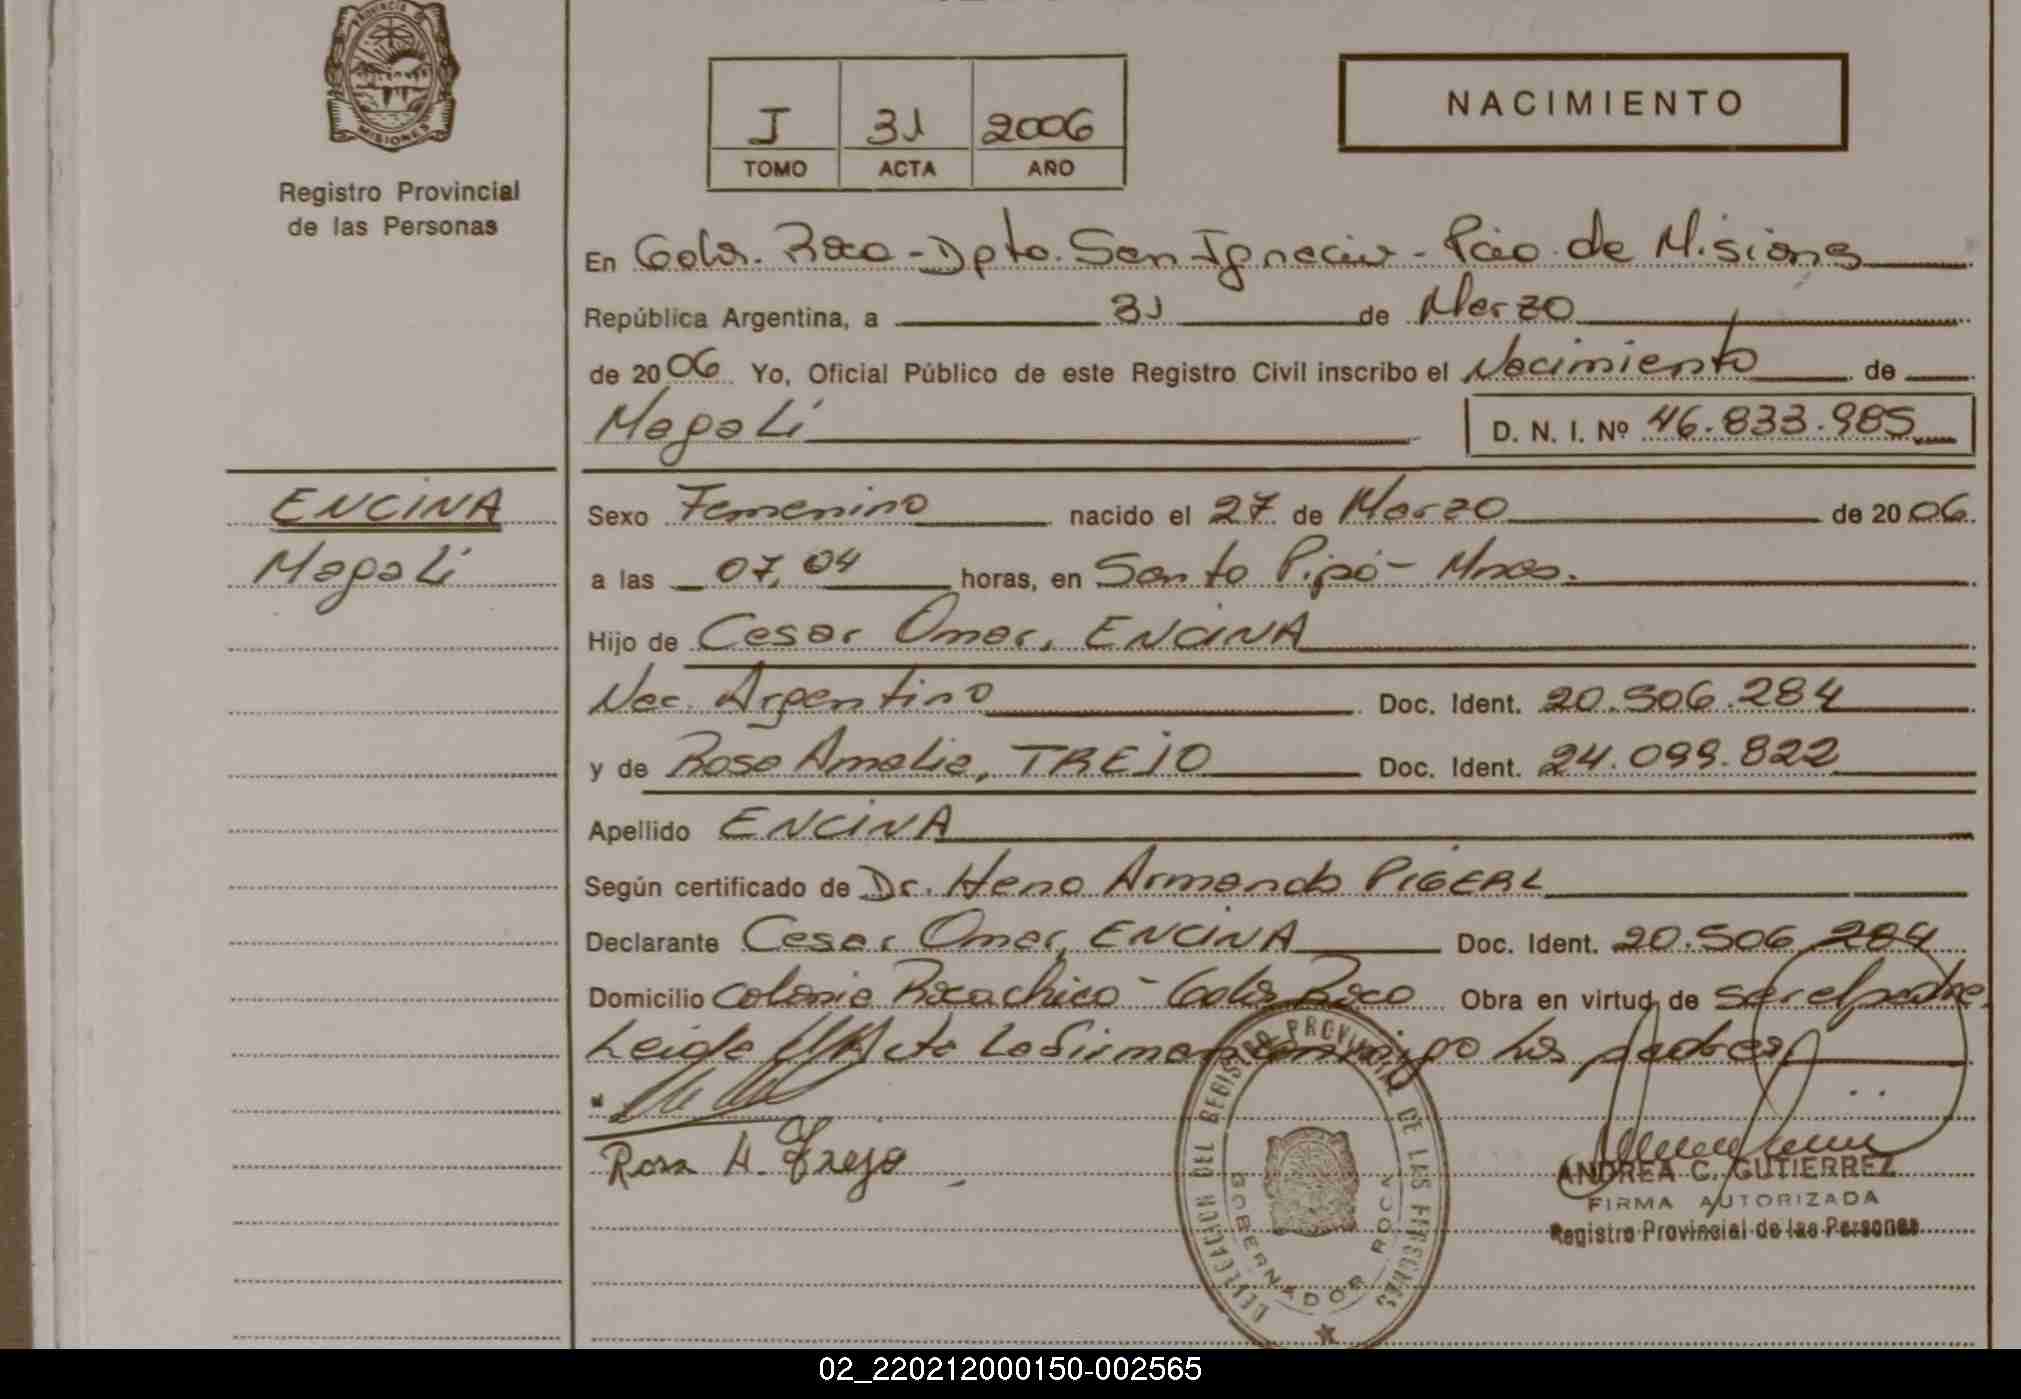 PROVINCIA DE
MISIONES
Registro Provincial
de las Personas
I 31 2006
TOMO ACTA AÑO
NACIMIENTO
En Gobr. Roca - Dpto. San Ignacio - Pcia. de Misiones
República Argentina, a 31 de Marzo
de 2006 Yo, Oficial Público de este Registro Civil inscribo el Nacimiento de
Magalí
D. N. I. Nº 46.833.985
ENCINA
Magalí
Sexo Femenino nacido el 27 de Marzo de 2006.
a las 07,04 horas, en Santo Pipó - Mnes.
Hijo de Cesar Omar, ENCINA
Nac. Argentino Doc. Ident. 20.506.284
y de Rosa Amalia, TREJO Doc. Ident. 24.099.822
Apellido ENCINA
Según certificado de Dr. Heno Armando PIGERL
Declarante Cesar Omar, ENCINA Doc. Ident. 20.506.284
Domicilio Colonia Roca chica - Gobr. Roca Obra en virtud de ser el padre.
Leida el Acta La firman conmigo los padres
Rosa A. Trejo
DELEGACION DEL REGISTRO PROVINCIAL DE LAS PERSONAS
GOBERNADOR ROCA
ANDREA C. GUTIERREZ
FIRMA AUTORIZADA
Registro Provincial de las Personas
02_220212000150-002565